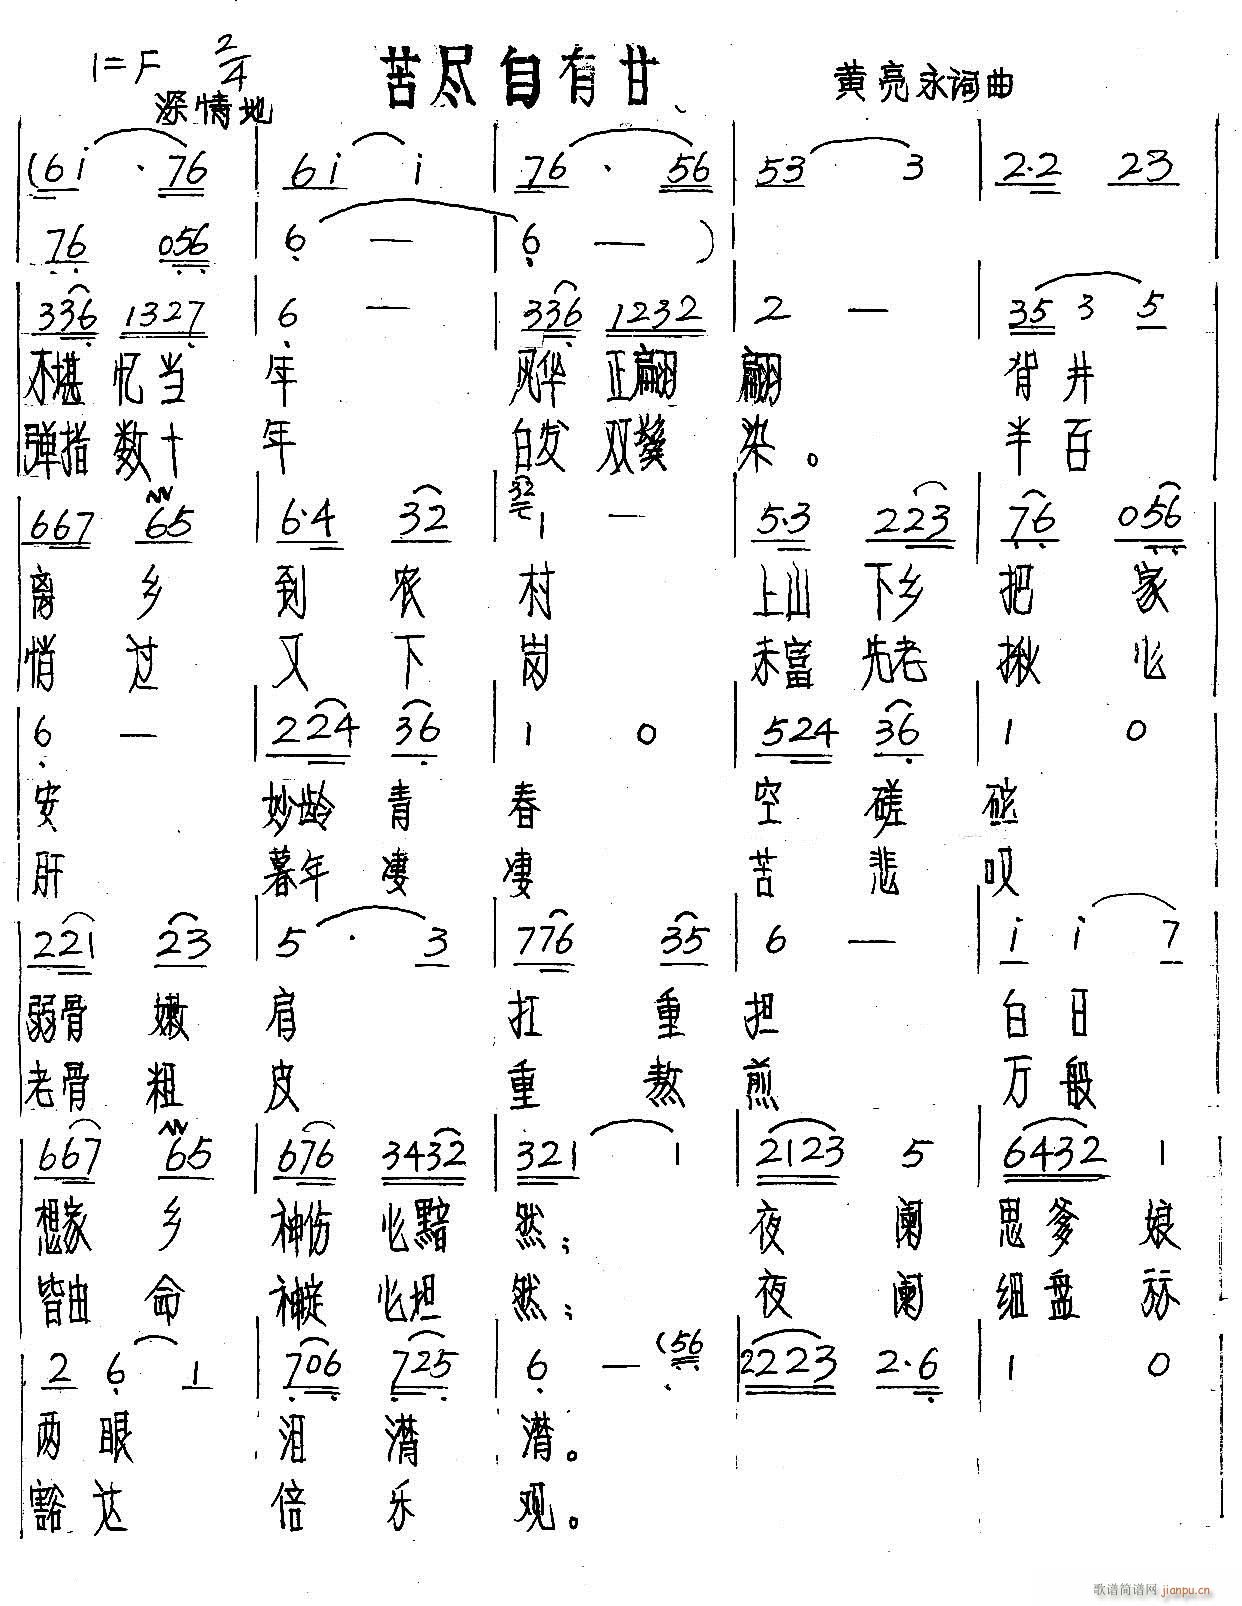 1=F 2/4 苦尽自有甘 黄亮永词曲
深情地
(6i · 76 | 6i i | 76 · 56 | 53 3 | 2·2 23
76 056 | 6 — | 6 — )
336 1327 | 6 — | 336 1232 | 2 — | 35 3 5
不堪忆当 年 风华正翩 翩 背井
弹指数十 年 白发双鬓 染。 半百
667 65 | 6·4 32 | 32 1 — | 5·3 223 | 76 056
离乡 到农 村 上山下乡 把家
悄过 又下 岗 未富先老 揪心
6 — | 224 36 | 1 0 | 524 36 | 1 0
安 妙龄青 春 空磋 砣
肝 暮年凄 凄 苦悲 叹
221 23 | 5 · 3 | 776 35 | 6 — | i i 7
弱骨嫩 肩 扛重 担 白日
老骨粗 皮 重熬 煎 万般
667 65 | 676 3432 | 321 1 | 2123 5 | 6432 1
想家乡 神伤心黯 然; 夜阑 思爹娘
皆由命 神定心坦 然; 夜阑 细盘
2 6 1 | 706 725 | 6 — (56 | 2223 2·6 | 1 0
两眼 泪潸 潸。
豁达 倍乐 观。
歌谱简谱网 jianpu.cn